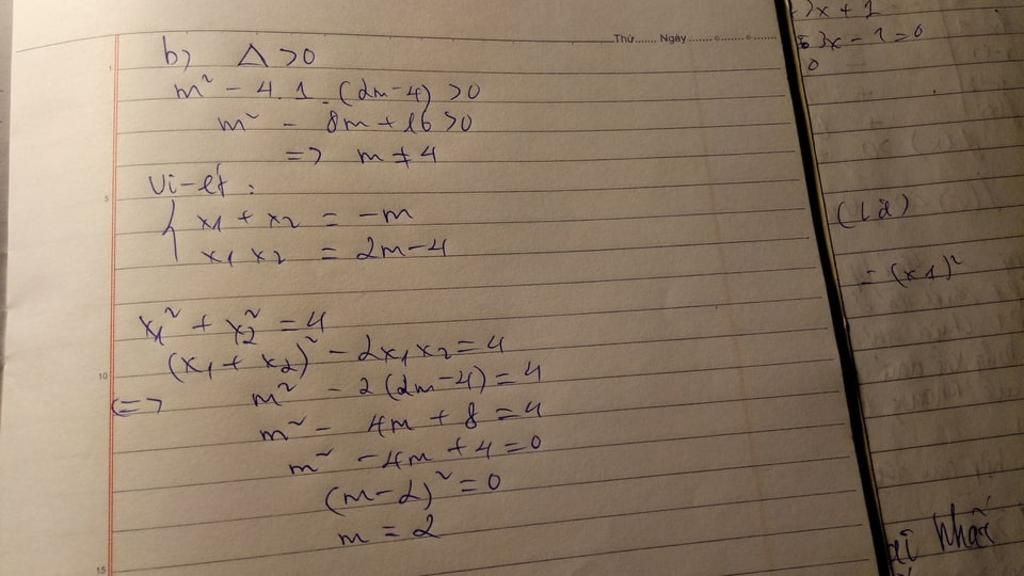 Thứ...... Ngày
b) Δ > 0
m² - 4.1.(2m-4) > 0
m² - 8m + 16 > 0
=> m ≠ 4
Vi-ét:
{ x1 + x2 = -m
x1 x2 = 2m-4
x1² + x2² = 4
(x1 + x2)² - 2x1x2 = 4
<=> m² - 2(2m-4) = 4
m² - 4m + 8 = 4
m² - 4m + 4 = 0
(m-2)² = 0
m = 2
5
10
15
x + 1
3x - 1 = 0
0
= (x1)²
nhất